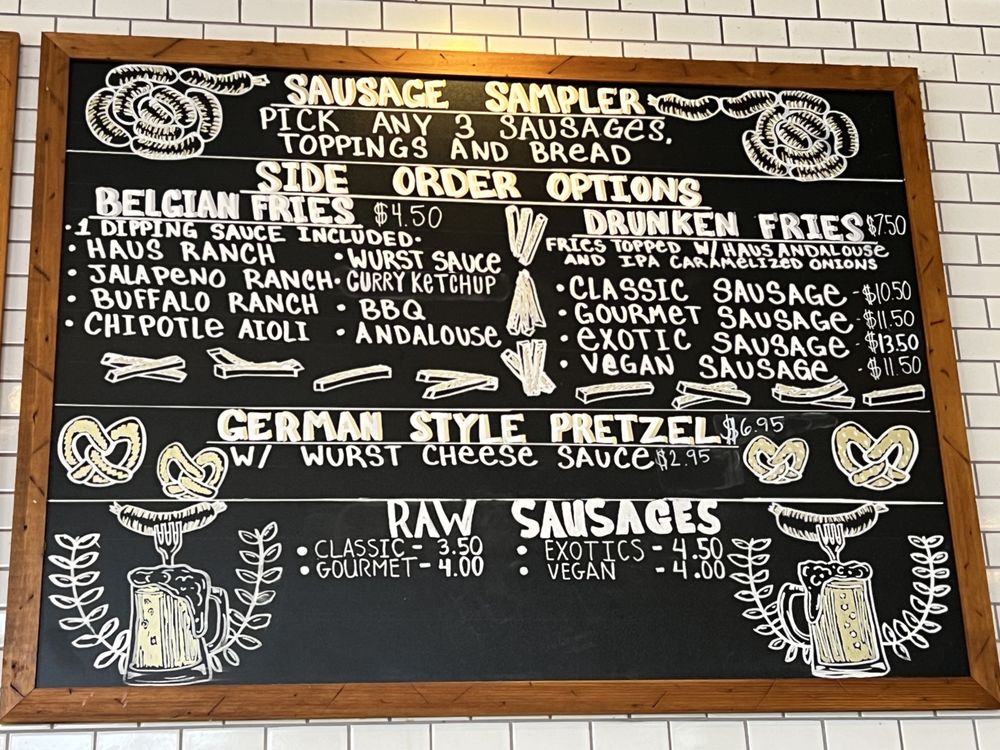 SAUSAGE SAMPLER
PICK ANY 3 SAUSAGES,
TOPPINGS AND BREAD
SIDE ORDER OPTIONS
BELGIAN FRIES $4.50
·1 DIPPING SAUCE INCLUDED·
• HAUS RANCH
• JALAPENO RANCH
• BUFFALO RANCH
• CHIPOTLE AIOLI
• WURST SAUCE
• CURRY KETCHUP
• BBQ
• ANDALOUSE
DRUNKEN FRIES $7.50
FRIES TOPPED W/ HAUS ANDALOUSE
AND IPA CARAMELIZED ONIONS
• CLASSIC SAUSAGE - $10.50
• GOURMET SAUSAGE - $11.50
• EXOTIC SAUSAGE - $13.50
• VEGAN SAUSAGE - $11.50
GERMAN STYLE PRETZEL $6.95
W/ WURST CHEESE SAUCE $2.95
RAW SAUSAGES
• CLASSIC - 3.50
• GOURMET - 4.00
• EXOTICS - 4.50
• VEGAN - 4.00